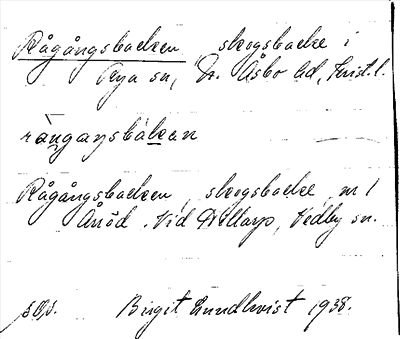 Rågångsbacken, skogsbacke i
Perya sn, N. Åsbo hd, Krist. l.
rångansbakan
Rågångsbacken, skogsbacke, nr 1
Anöd. Vid Tåltarp, Vedby sn.
Birgit Lundkvist 1938.